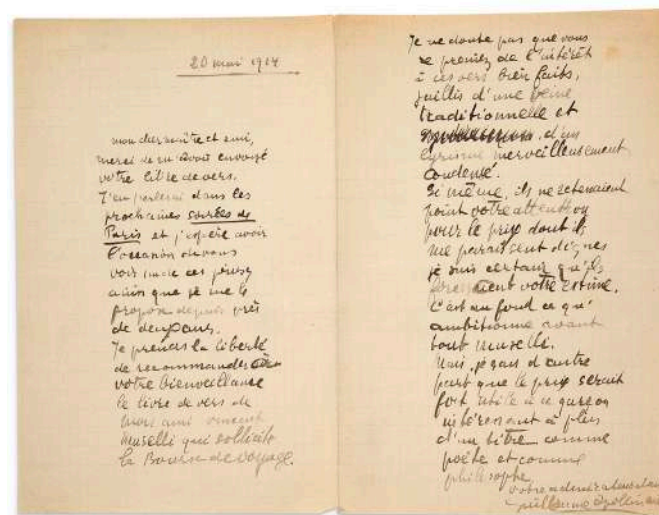 20 mai 1914
mon cher maître et ami,
merci de m'avoir envoyé
votre livre de vers.
J'en parlerai dans les
prochaines soirées de
Paris et j'espère avoir
l'occasion de vous
voir un de ces jours
ainsi que je me le
propose depuis près
de deux ans.
Je prends la liberté
de recommander à
votre bienveillance
le livre de vers de
mon ami vincent
Muselli qui sollicite
la Bourse de voyage.
Je ne doute pas que vous
ne preniez de l'intérêt
à ces vers bien faits,
jaillis d'une veine
traditionnelle et
d'un
lyrisme merveilleusement
condensé.
Si même, ils ne retenaient
point votre attention
pour le prix dont ils
me paraissent dignes
je suis certain qu'ils
forceraient votre estime.
C'est au fond ce qu'
ambitionne avant
tout Muselli.
Mais, je sais d'autre
part que le prix serait
fort utile à ce garçon
intéressant à plus
d'un titre comme
poète et comme
philosophe.
votre
Guillaume Apollinaire